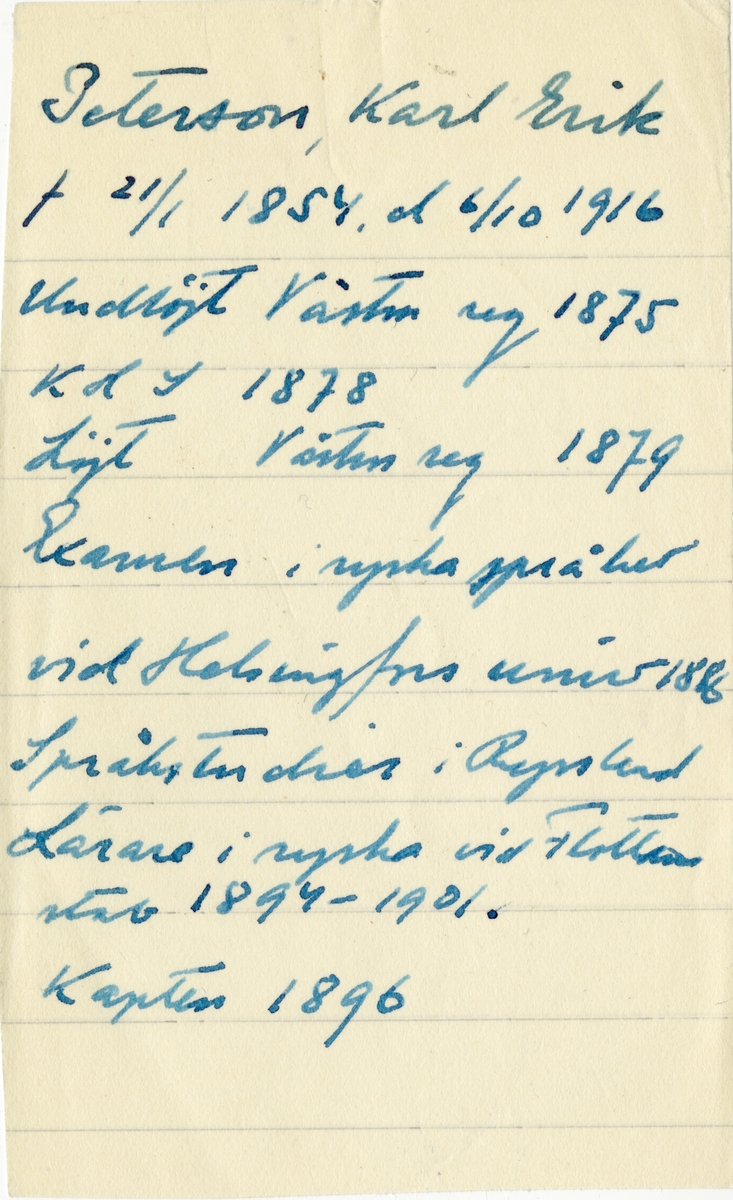 Peterson, Karl Erik
f 21/1 1854, d 6/10 1916
Undlöjt Västm reg 1875
K d S 1878
Löjt Västm reg 1879
Examen i ryska språket
vid Helsingfors univ 1886
Språkstudier i Ryssland
Lärare i ryska vid Flottans
stab 1894-1901.
Kapten 1896